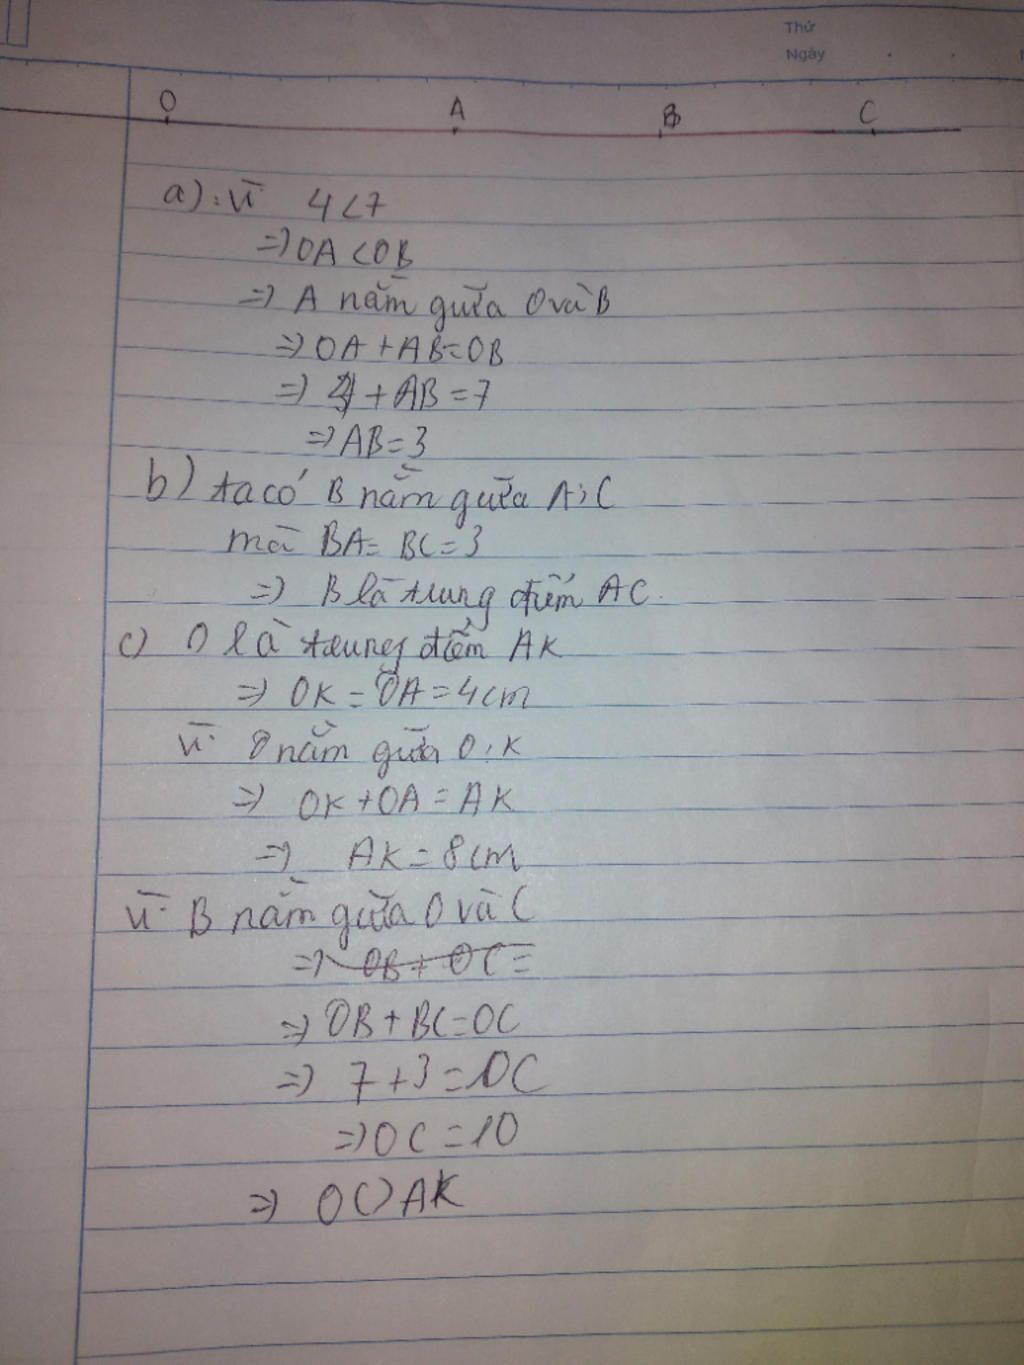 Thứ
Ngày
O A B C
a): Vì 4<7
=> OA < OB
=> A nằm giữa O và B
=> OA + AB = OB
=> 4 + AB = 7
=> AB = 3
b) ta có B nằm giữa A; C
mà BA = BC = 3
=> B là trung điểm AC.
c) O là trung điểm AK
=> OK = OA = 4cm
Vì O nằm giữa O; K
=> OK + OA = AK
=> AK = 8cm
Vì B nằm giữa O và C
=> OB + OC =
=> OB + BC = OC
=> 7 + 3 = OC
=> OC = 10
=> OC > AK